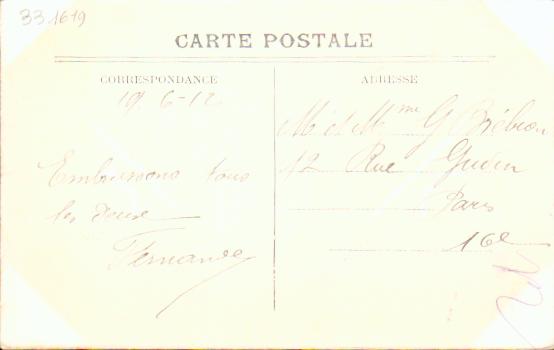 33 1619
CARTE POSTALE
CORRESPONDANCE
19. 6-12
Embrassons tous
les deux
Fernande
ADRESSE
Mr et Mme G Brébion
12 Rue Gudin
Paris
16e